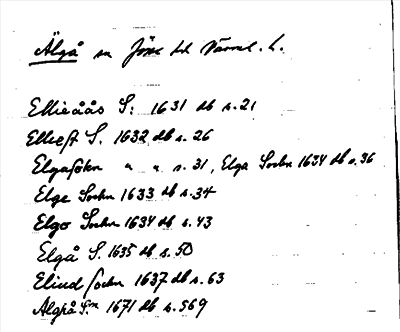 Älgå sn Jösse hd Värml. l.
Ellieåås S: 1631 db s. 21
Elliest S. 1632 db s. 26
Elgasokn " " s. 31, Elga Sockn 1634 db s. 36
Elge Sockn 1633 db s. 34
Elgo Sockn 1634 db s. 43
Elgå S. 1635 db s. 50
Elind sockn 1637 db s. 63
Älgå Sn 1671 db s. 569